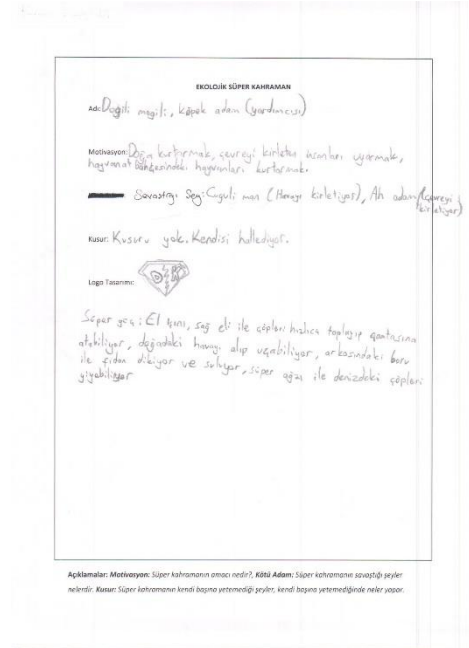 EKOLOJİK SÜPER KAHRAMAN
Adı: Dogili mogili, köpek adam (yardımcısı)
Motivasyon: Doğa kurtarmak, çevreyi kirleten insanları uyarmak,
hayvanat bahçerindeki hayvanları kurtarmak.
Savaştığı Şey: man (Havayı kirletiyor), Ah adam (çevreyi
kirletiyor)
Kusur: Kusuru yok. Kendisi hallediyor.
Logo Tasarımı:
Süper güç: El ışını, sağ eli ile çöpleri hızlıca toplayıp çantasına
atabiliyor, doğadaki havayı alıp uçabiliyor, arkasındaki boru
ile fidan dikiyor ve suluyor, süper ağzı ile denizdeki çöpleri
yiyebiliyor
Açıklamalar: Motivasyon: Süper kahramanın amacı nedir?, Kötü Adam: Süper kahramanın savaştığı şeyler
nelerdir. Kusur: Süper kahramanın kendi başına yetemediği şeyler, kendi başına yetemediğinde neler yapar.